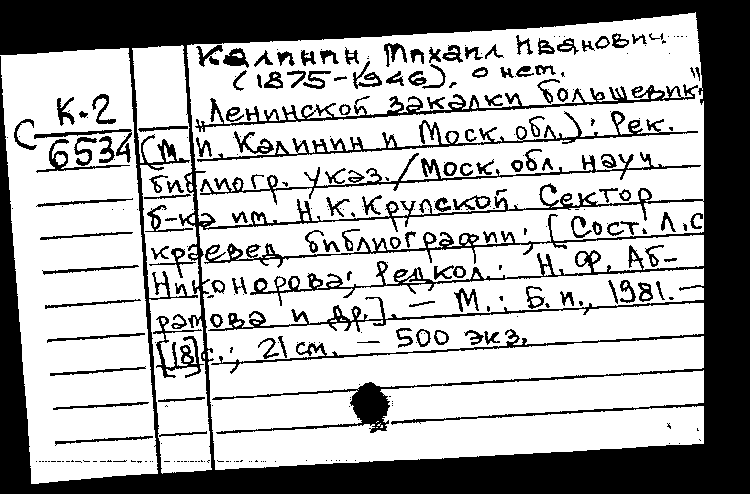 Калинин, Михаил Иванович
(1875-1946), о нем.
К-2
„Ленинской закалки большевик"
С 6534
(М. И. Калинин и Моск. обл.): Рек.
библиогр. указ. / Моск. обл. науч.
б-ка им. Н. К. Крупской. Сектор
краевед. библиографии; [Сост. Л. С
Никонорова; Редкол.: Н. Ф. Аб-
рамова и др.]. — М.: Б. и., 1981. —
[18] с.; 21 см. — 500 экз.